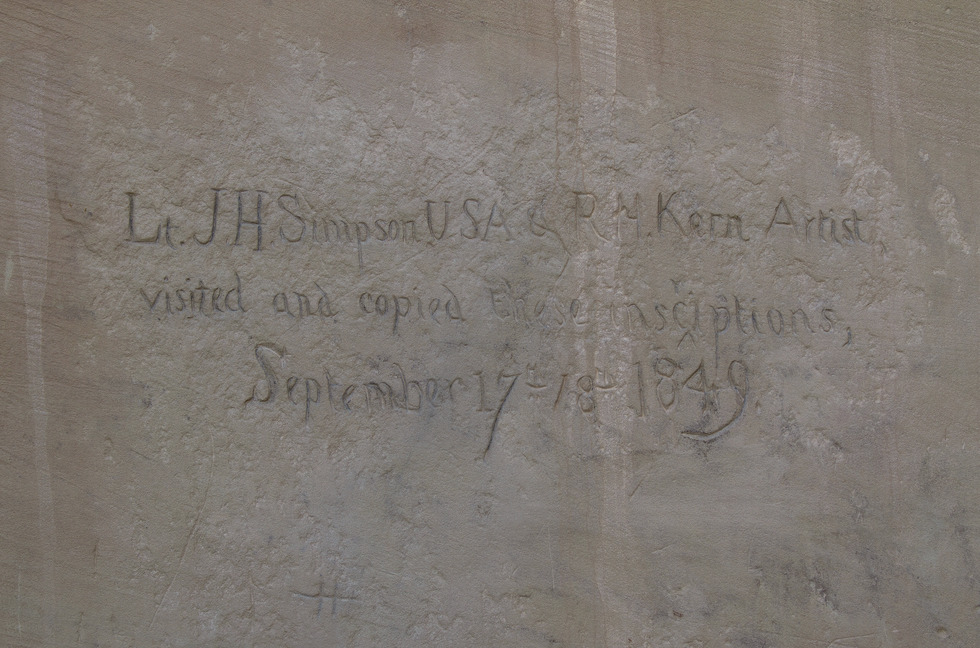 Lt. J.H. Simpson U S A. & R.H. Kern Artist,
visited and copied these insciptions,
September 17th 18th 1849.